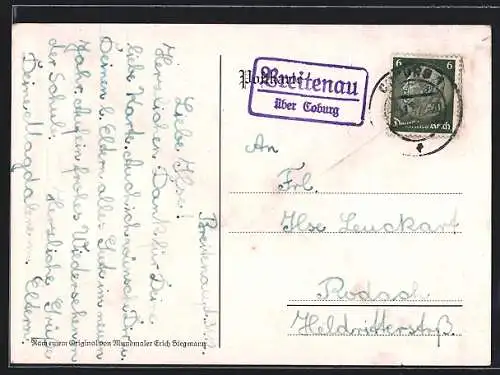 Postkarte
Breitenau
über Coburg
6
6
An
Frl.
Ilse Leuckart
Rodach
Heldritterstraß
Breitenau,
Liebe Ilse!
Herzlichen Dank für Deine
liebe Karte. Auch ich wünsche Dir u.
Deinen l. Eltern alles Gute im neuen
Jahr. Auf ein frohes Wiedersehen in
der Schule! Herzliche Grüße
Deine Magdalene u. Eltern.
Nach einem Original von Mundmaler Erich Siegmann